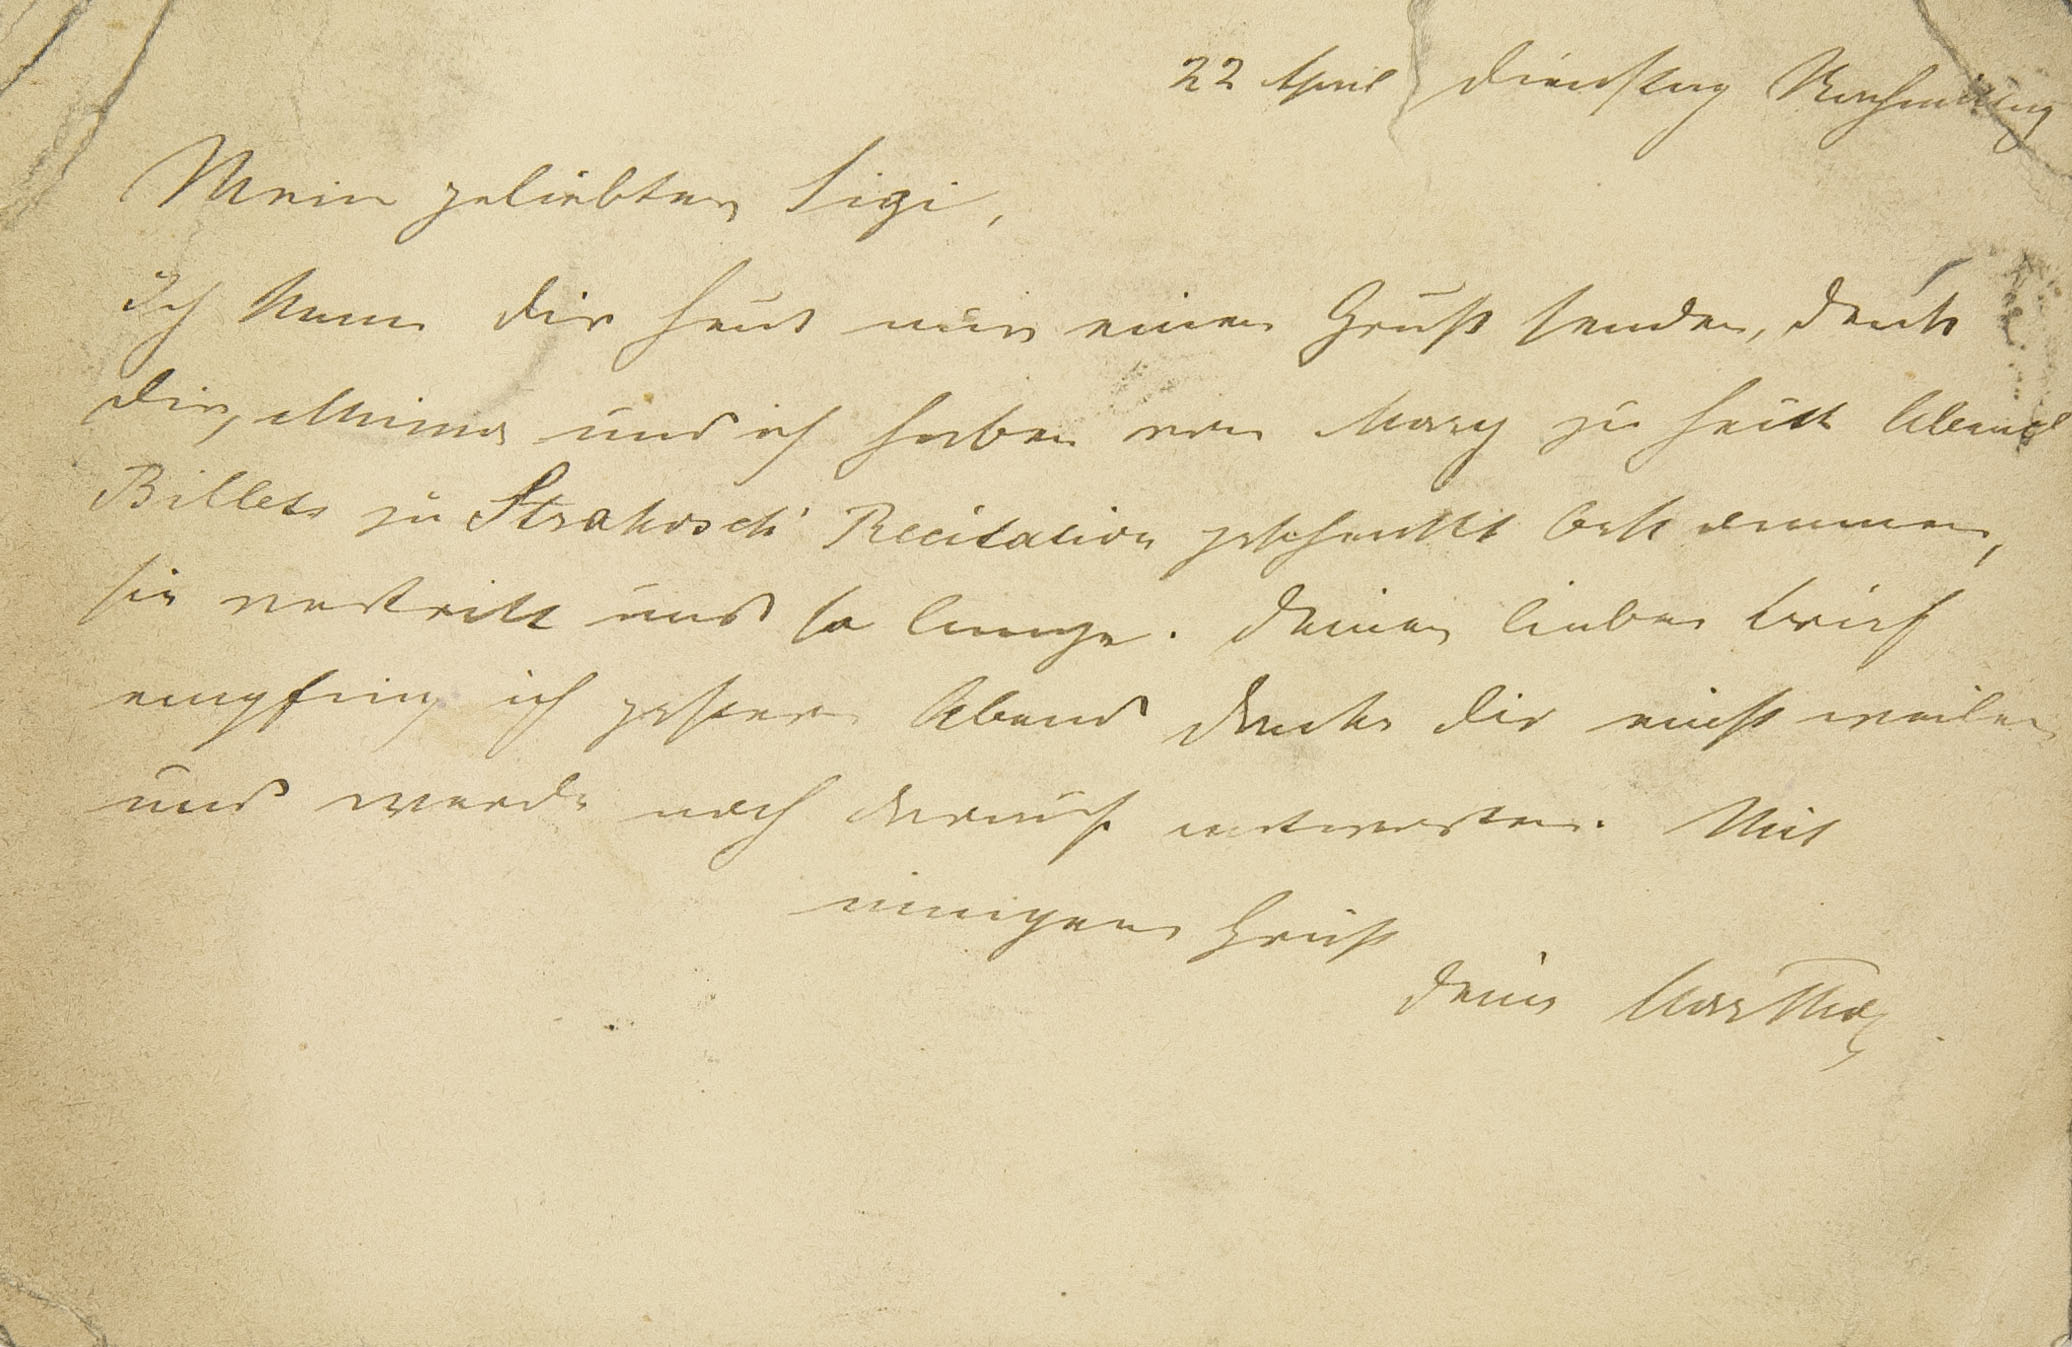 22 April Dienstag Nachmittag
Mein geliebter Sigi,
Ich kann Dir heut nur einen Gruß senden, denk
Dir, Minna und ich haben von Mary zu heut Abend
Billets zu Strakosch' Recitation geschenkt bekommen,
sie vertritt uns so lange. Deinen lieben Brief
empfing ich gestern Abend danke Dir innigst
und werde noch darauf antworten. Mit
innigem Gruß
Deine Martha